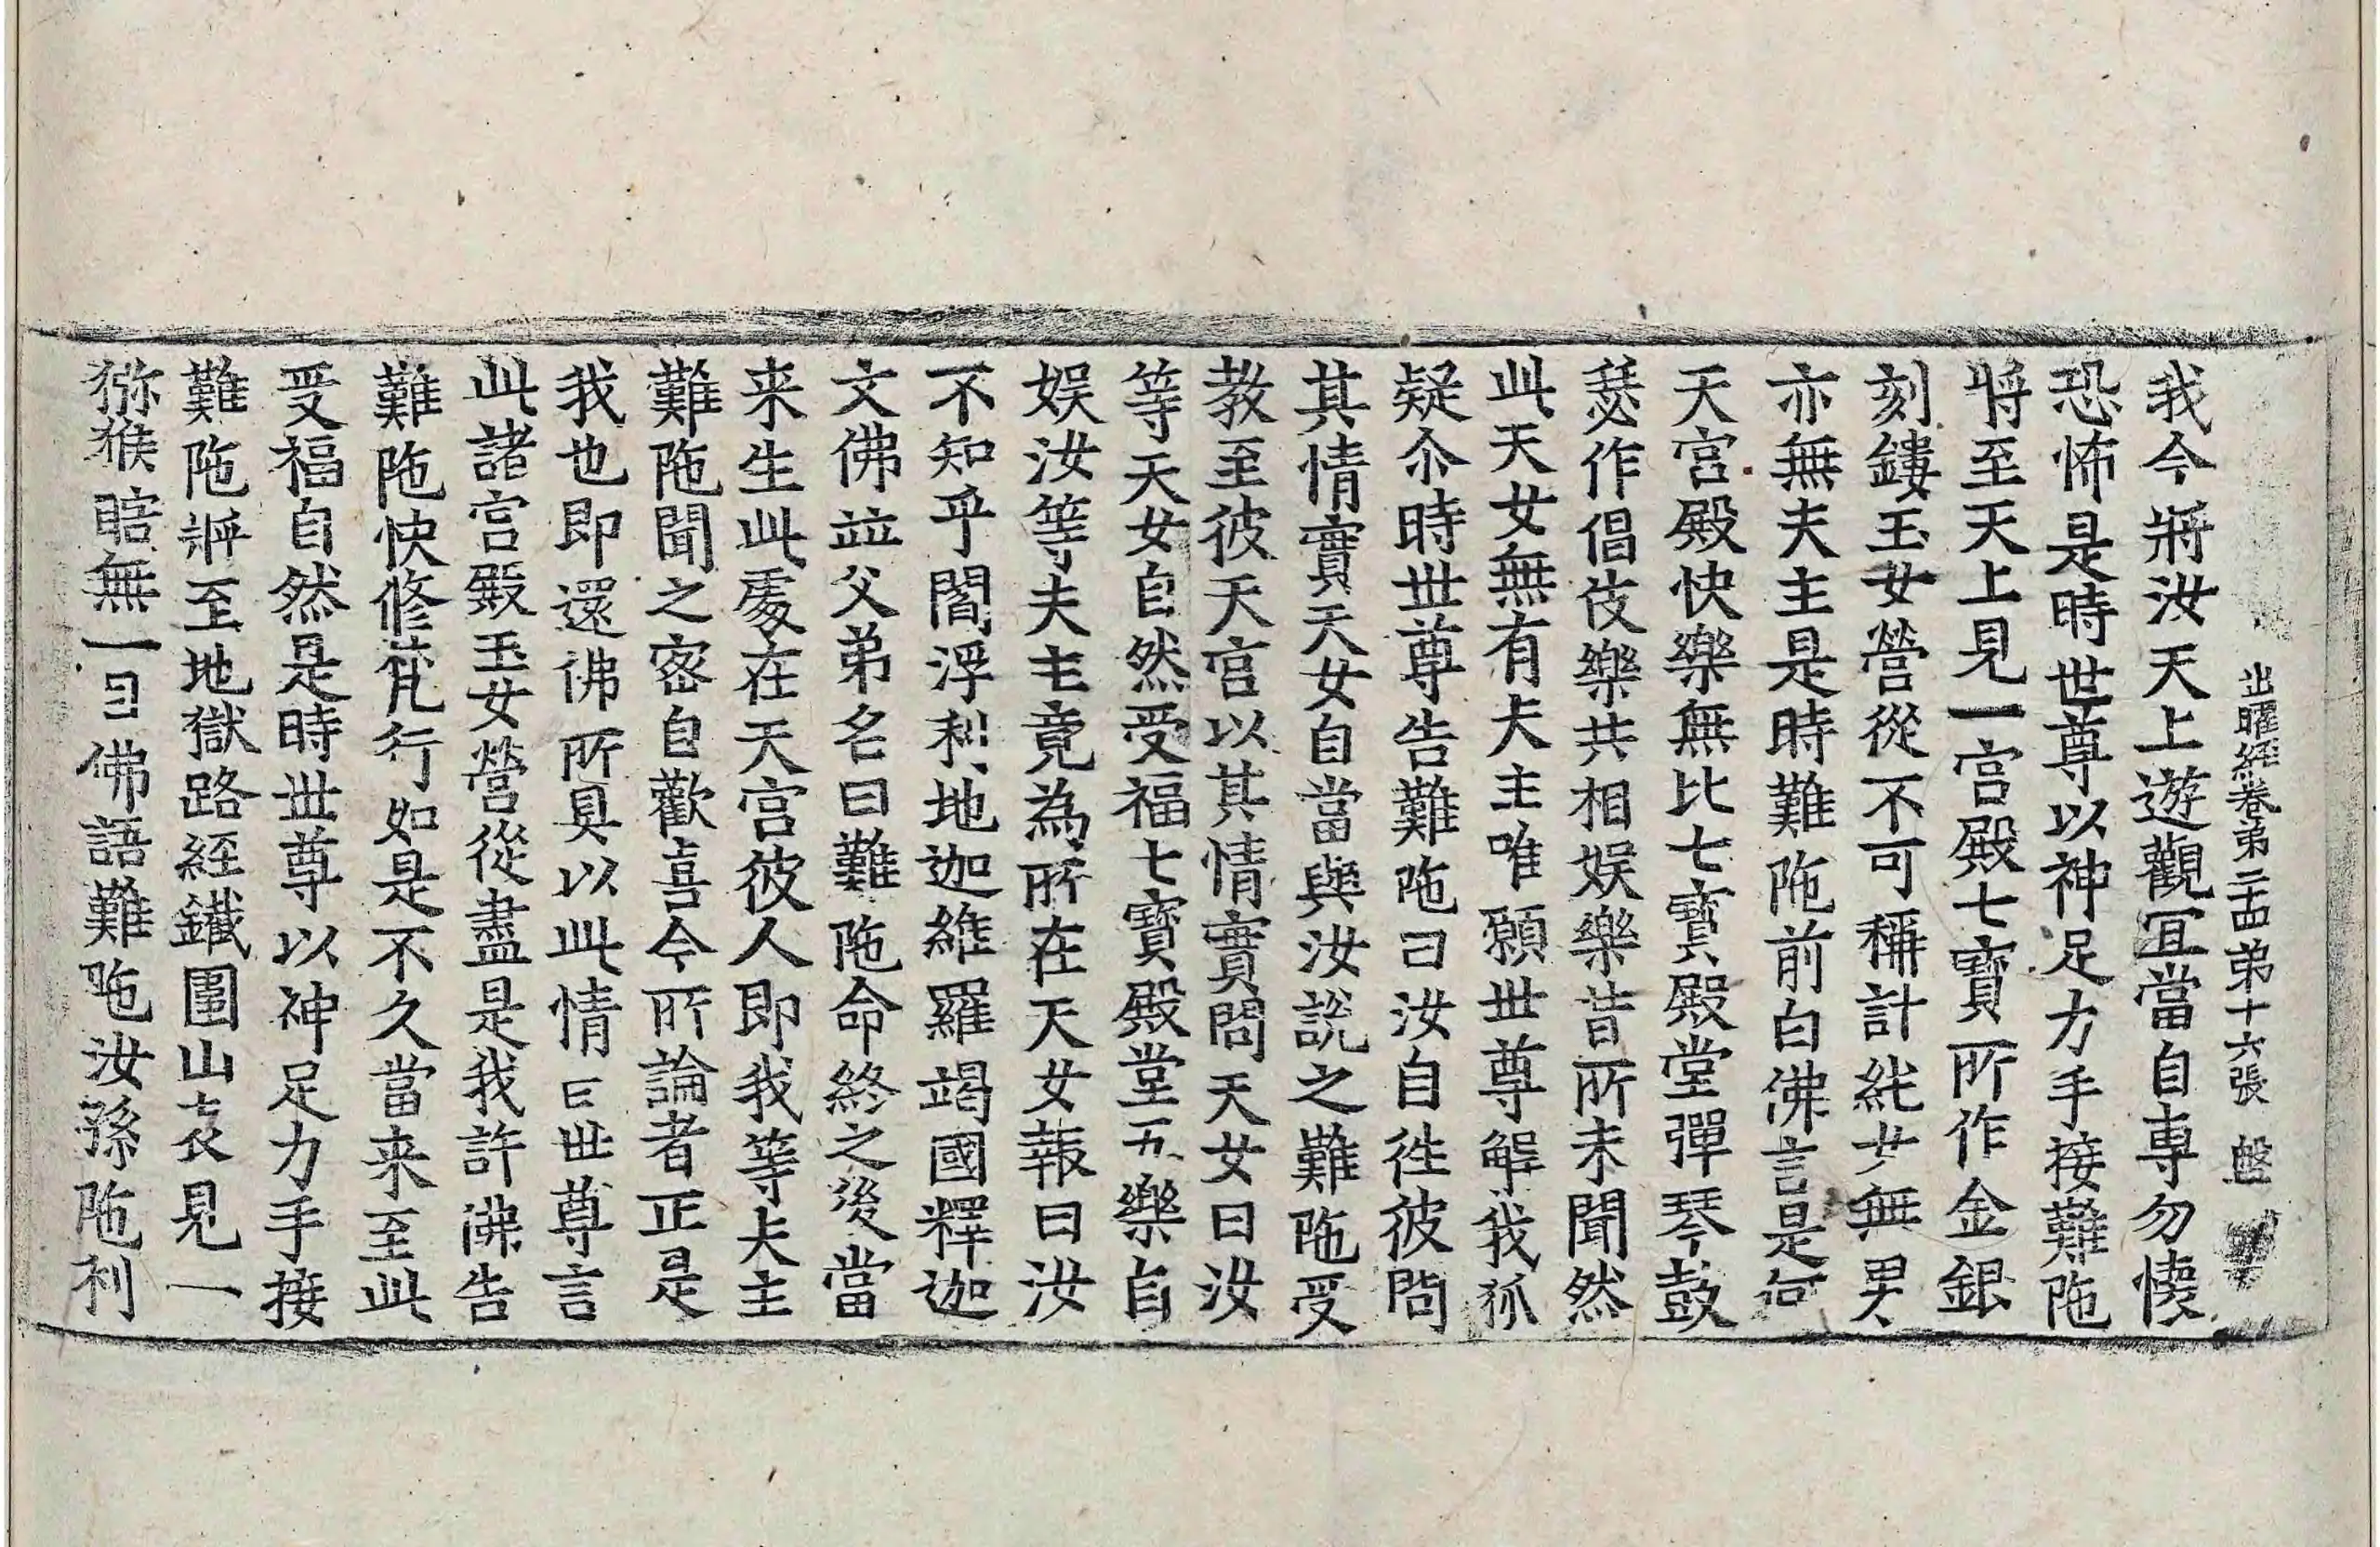 出曜經卷第二十四 第十六張 盤
我今將汝天上遊觀冝當自專勿懐
恐怖是時世尊以神足力手接難陁
將至天上見一宫殿七寶所作金銀
刻鏤玉女營從不可稱計純女無男
亦無夫主是時難陁前白佛言是何
天宫殿快樂無比七寶殿堂彈琴鼓
瑟作倡伎樂共相娱樂昔所未聞然
此天女無有夫主唯願世尊解我狐
疑尒時世尊告難陁曰汝自徃彼問
其情實天女自當與汝說之難陁受
教至彼天宫以其情實問天女曰汝
等天女自然受福七寶殿堂五樂自
娱汝等夫主竟為所在天女報曰汝
不知乎閻浮利地迦維羅竭國釋迦
文佛並父弟名曰難陁命終之後當
来生此處在天宫彼人即我等夫主
難陁聞之密自歡喜今所論者正是
我也即還佛所具以此情曰世尊言
此諸宫殿玉女營從盡是我許佛告
難陁快修梵行如是不久當来至此
受福自然是時世尊以神足力手接
難陁將至地獄路經鐵圍山表見一
猕猴瞎無一目佛語難陁汝孫陁利